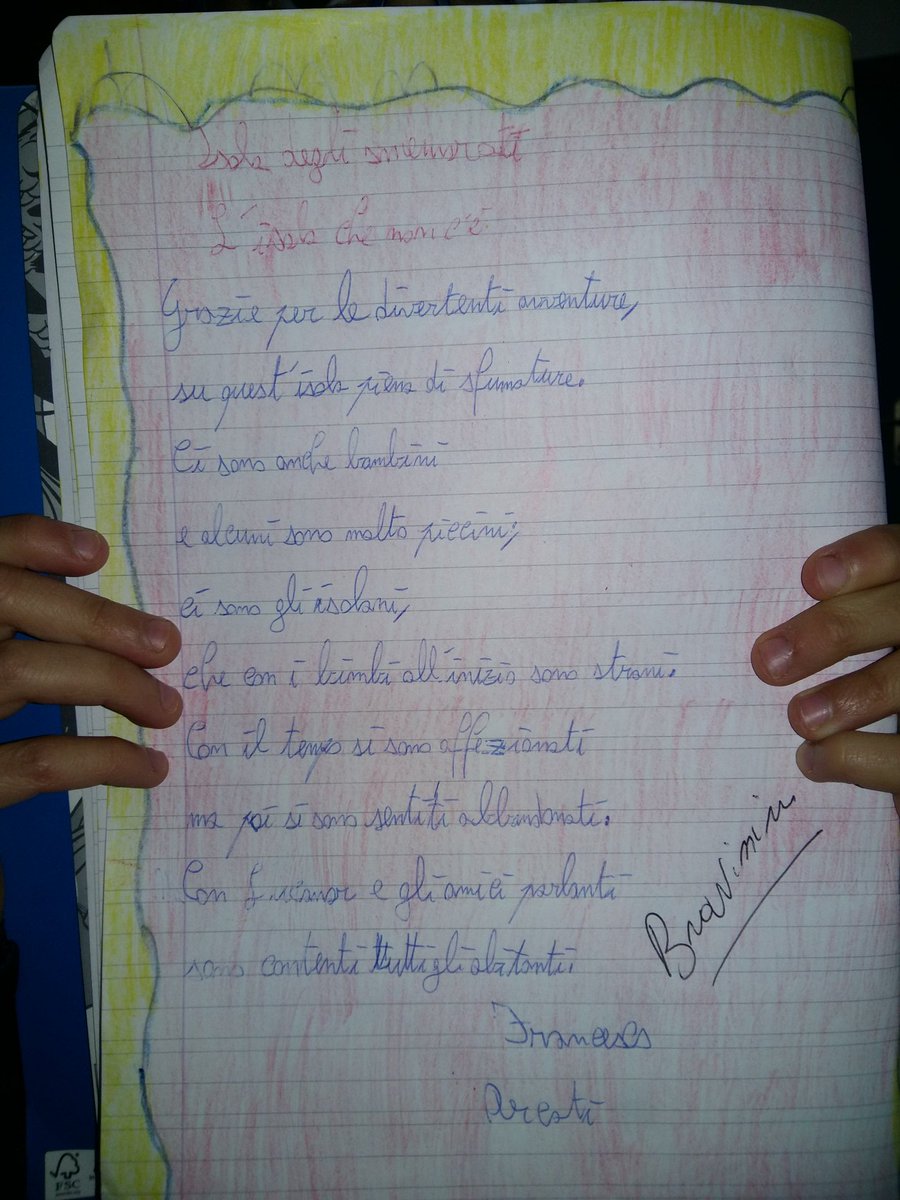 Isola degli smemorati
L'isola che non c'è
Grazie per le divertenti avventure,
su quest'isola piena di sfumature.
Ci sono anche bambini
e alcuni sono molto piccini;
ci sono gli isolani,
che con i bimbi all'inizio sono strani.
Con il tempo si sono affezionati
ma poi si sono sentiti abbandonati.
Con Lucanor e gli amici parlanti
sono contenti tutti gli abitanti.
Bravissimi
Francesco
Aresti
FSC